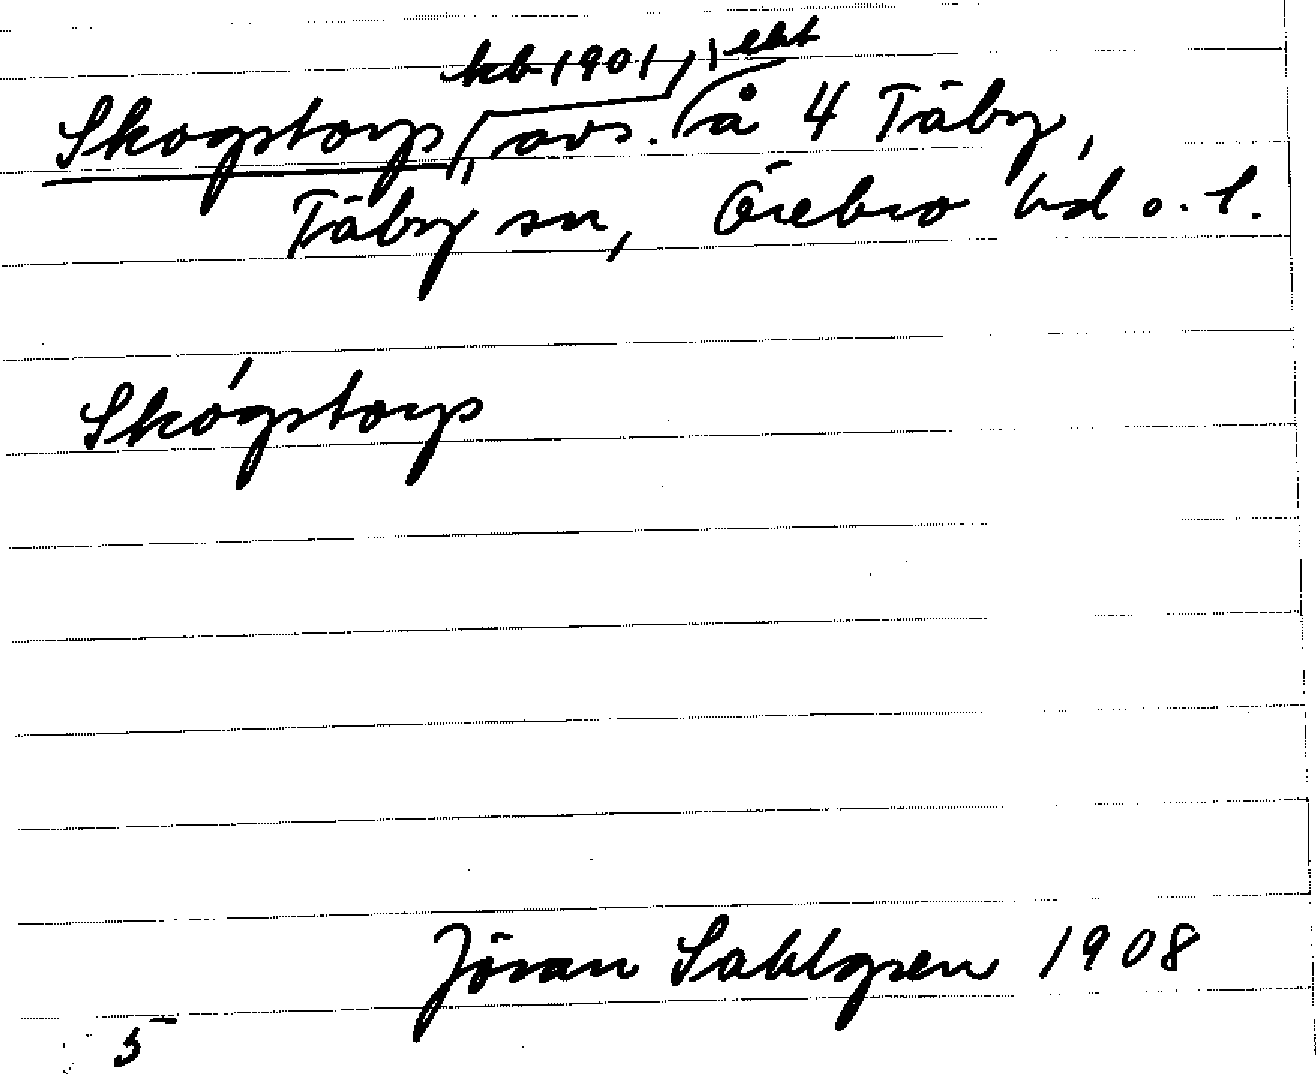 kb 1901, ekt
Skogstorp, avs. å 4 Täby,
Täby sn, Örebro hd o. l.
Skógstorp
Jöran Sahlgren 1908
5